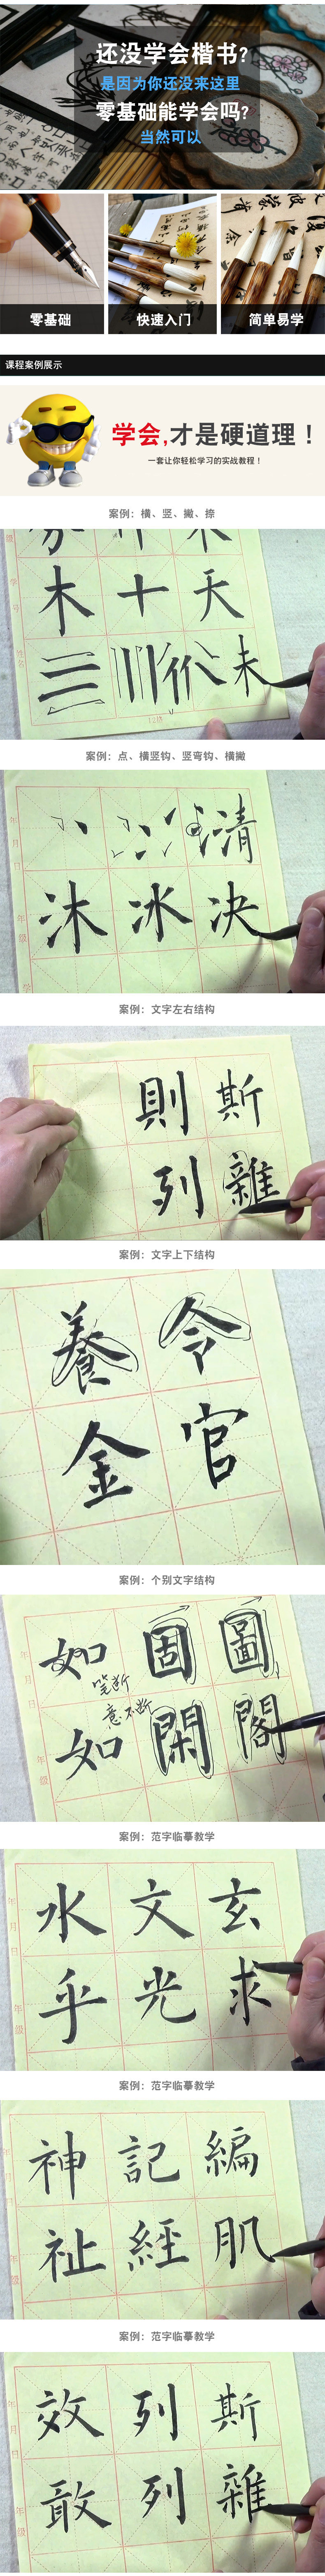 还没学会楷书?
是因为你还没来这里
零基础能学会吗?
当然可以
零基础
快速入门
简单易学
课程案例展示
学会,才是硬道理！
一套让你轻松学习的实战教程！
案例：横、竖、撇、捺
木 十 天
三 川 介 未
案例：点、横竖钩、竖弯钩、横撇
清
沐 冰 决
案例：文字左右结构
則 斯
列 雜
案例：文字上下结构
養 令
金 官
案例：个别文字结构
如 固 圖
笔断
意不断
如 閑 閣
案例：范字临摹教学
水 文 玄
乎 光 求
案例：范字临摹教学
神 記 編
祉 經 肌
案例：范字临摹教学
效 列 斯
敢 列 雜